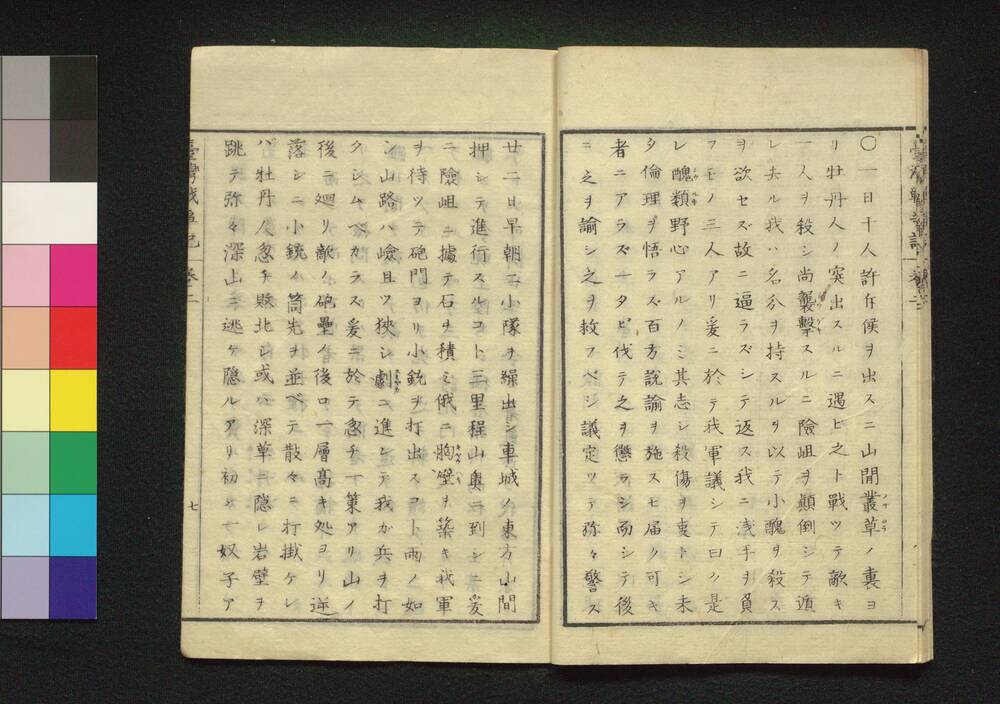 〇一日十人許斥候ヲ出スニ山間叢草ノ裏ヨ
リ牡丹人ノ突出スルニ遇ヒ之ト戰ツテ敵キ
一人ヲ殺シ尚襲撃スルニ險岨ヲ顛倒シテ遁
レ去ル我ハ名分ヲ持スルヲ以テ小醜ヲ殺ス
ヲ欲セズ故ニ逼ラズシテ返ス我ニ浅手ヲ負
フモノ三人アリ爰ニ於テ我軍議シテ曰ク是
レ醜類野心アルノミ其志シ殺傷ヲ事トシ未
タ倫理ヲ悟ラズ百方説諭ヲ施スモ届ク可キ
者ニアラズ一タビ伐テ之ヲ懲ラシ而シテ後
ニ之ヲ諭シ之ヲ救フベシ議定ツテ弥々警ス
廿二日早朝二小隊ヲ繰出シ車城ノ東方山間
押シテ進行スルコト三里程山奥ニ到シニ爰
ニ險岨ニ據テ石ヲ積ミ俄ニ胸壁ヲ築キ我軍
ヲ待ツテ砲門ヨリ小銃ヲ打出スコト雨ノ如
シ山路ハ嶮且ツ狹シ劇ニ進シテ我ガ兵ヲ打
タシムベカラズ爰ニ於テ忽チ一策アリ山ノ
後ニ廻リ敵ノ砲壘ノ後ロ一層髙キ処ヨリ逆
落シニ小銃ノ筒先ヲ並ベテ散々ニ打掛ケレ
バ牡丹人忽チ敗北シ或ハ深草ニ隠レ岩壁ヲ
跳テ弥々深山ニ逃ケ隠ルアリ初メ一奴子ア
臺灣戰争記 巻二
七